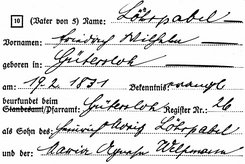 10 (Vater von 5) Name: Löhrpabel
Vornamen: Friedrich Wilhelm
geboren in: Gütersloh
am 19.2. 1831 Bekenntnis: evangl
beurkundet beim
Standesamt/Pfarramt: Gütersloh Register Nr. 26
als Sohn des: Heinrich Löhrpabel
und der: Maria Weltmann